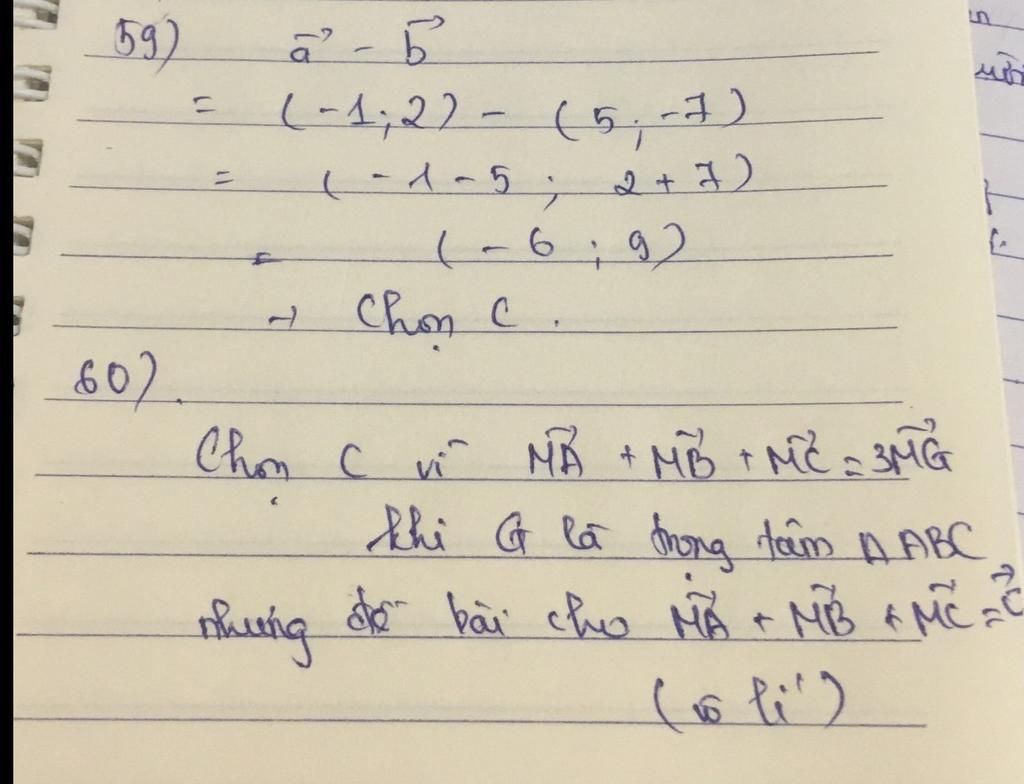 59) a⃗ - b⃗
= (-1;2) - (5;-7)
= (-1-5; 2+7)
= (-6;9)
→ Chọn C.
60).
Chọn C vì MA⃗ + MB⃗ + MC⃗ = 3MG⃗
khi G là trọng tâm Δ ABC
nhưng đề bài cho MA⃗ + MB⃗ + MC⃗ =
(vô lí)